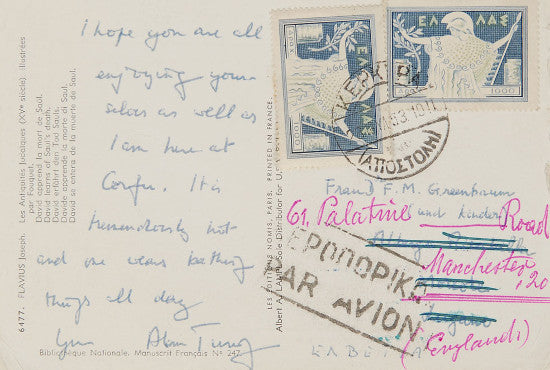 I hope you are all
enjoying your-
selves as well as
I am here at
Corfu. It is
tremendously hot
and one wears bathing
things all day
Yours Alan Turing
6477. FLAVIUS Joseph. Les Antiquités judaïques (XVe siècle) illustrées
par Fouquet.
David apprend la mort de Saül.
David learns of Saul's death.
David erfährt den Tod Sauls.
Davide apprende la morte di Saul.
David se entera de la muerte de Saul.
Bibliothèque Nationale. Manuscrit Français No 247
LES ÉDITIONS NOMIS, PARIS. PRINTED IN FRANCE.
Albert A. Sole Distributor for U.
ΕΛΛΑΣ
1000
ΕΛΛΑΣ
1000
ΚΕΡΚΥΡΑ
(ΑΠΟΣΤΟΛΗ)
Fraud F.M. Greenbaum
(und Kinder)
61. Palatine Road
Manchester, 20
(England)
ΕΡΟΠΟΡΙΚ
AR AVION